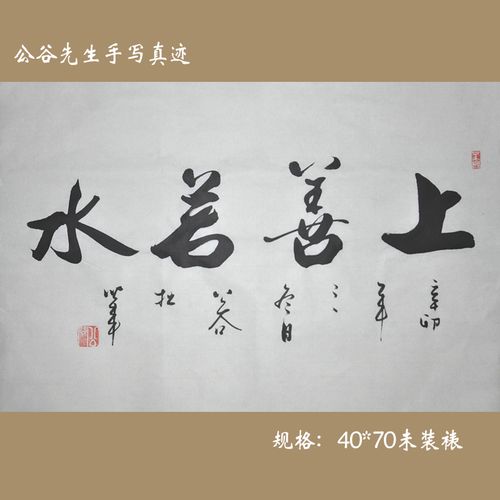 公谷先生手写真迹
上善若水
辛卯年冬日谷拙笔
规格：40*70未装裱